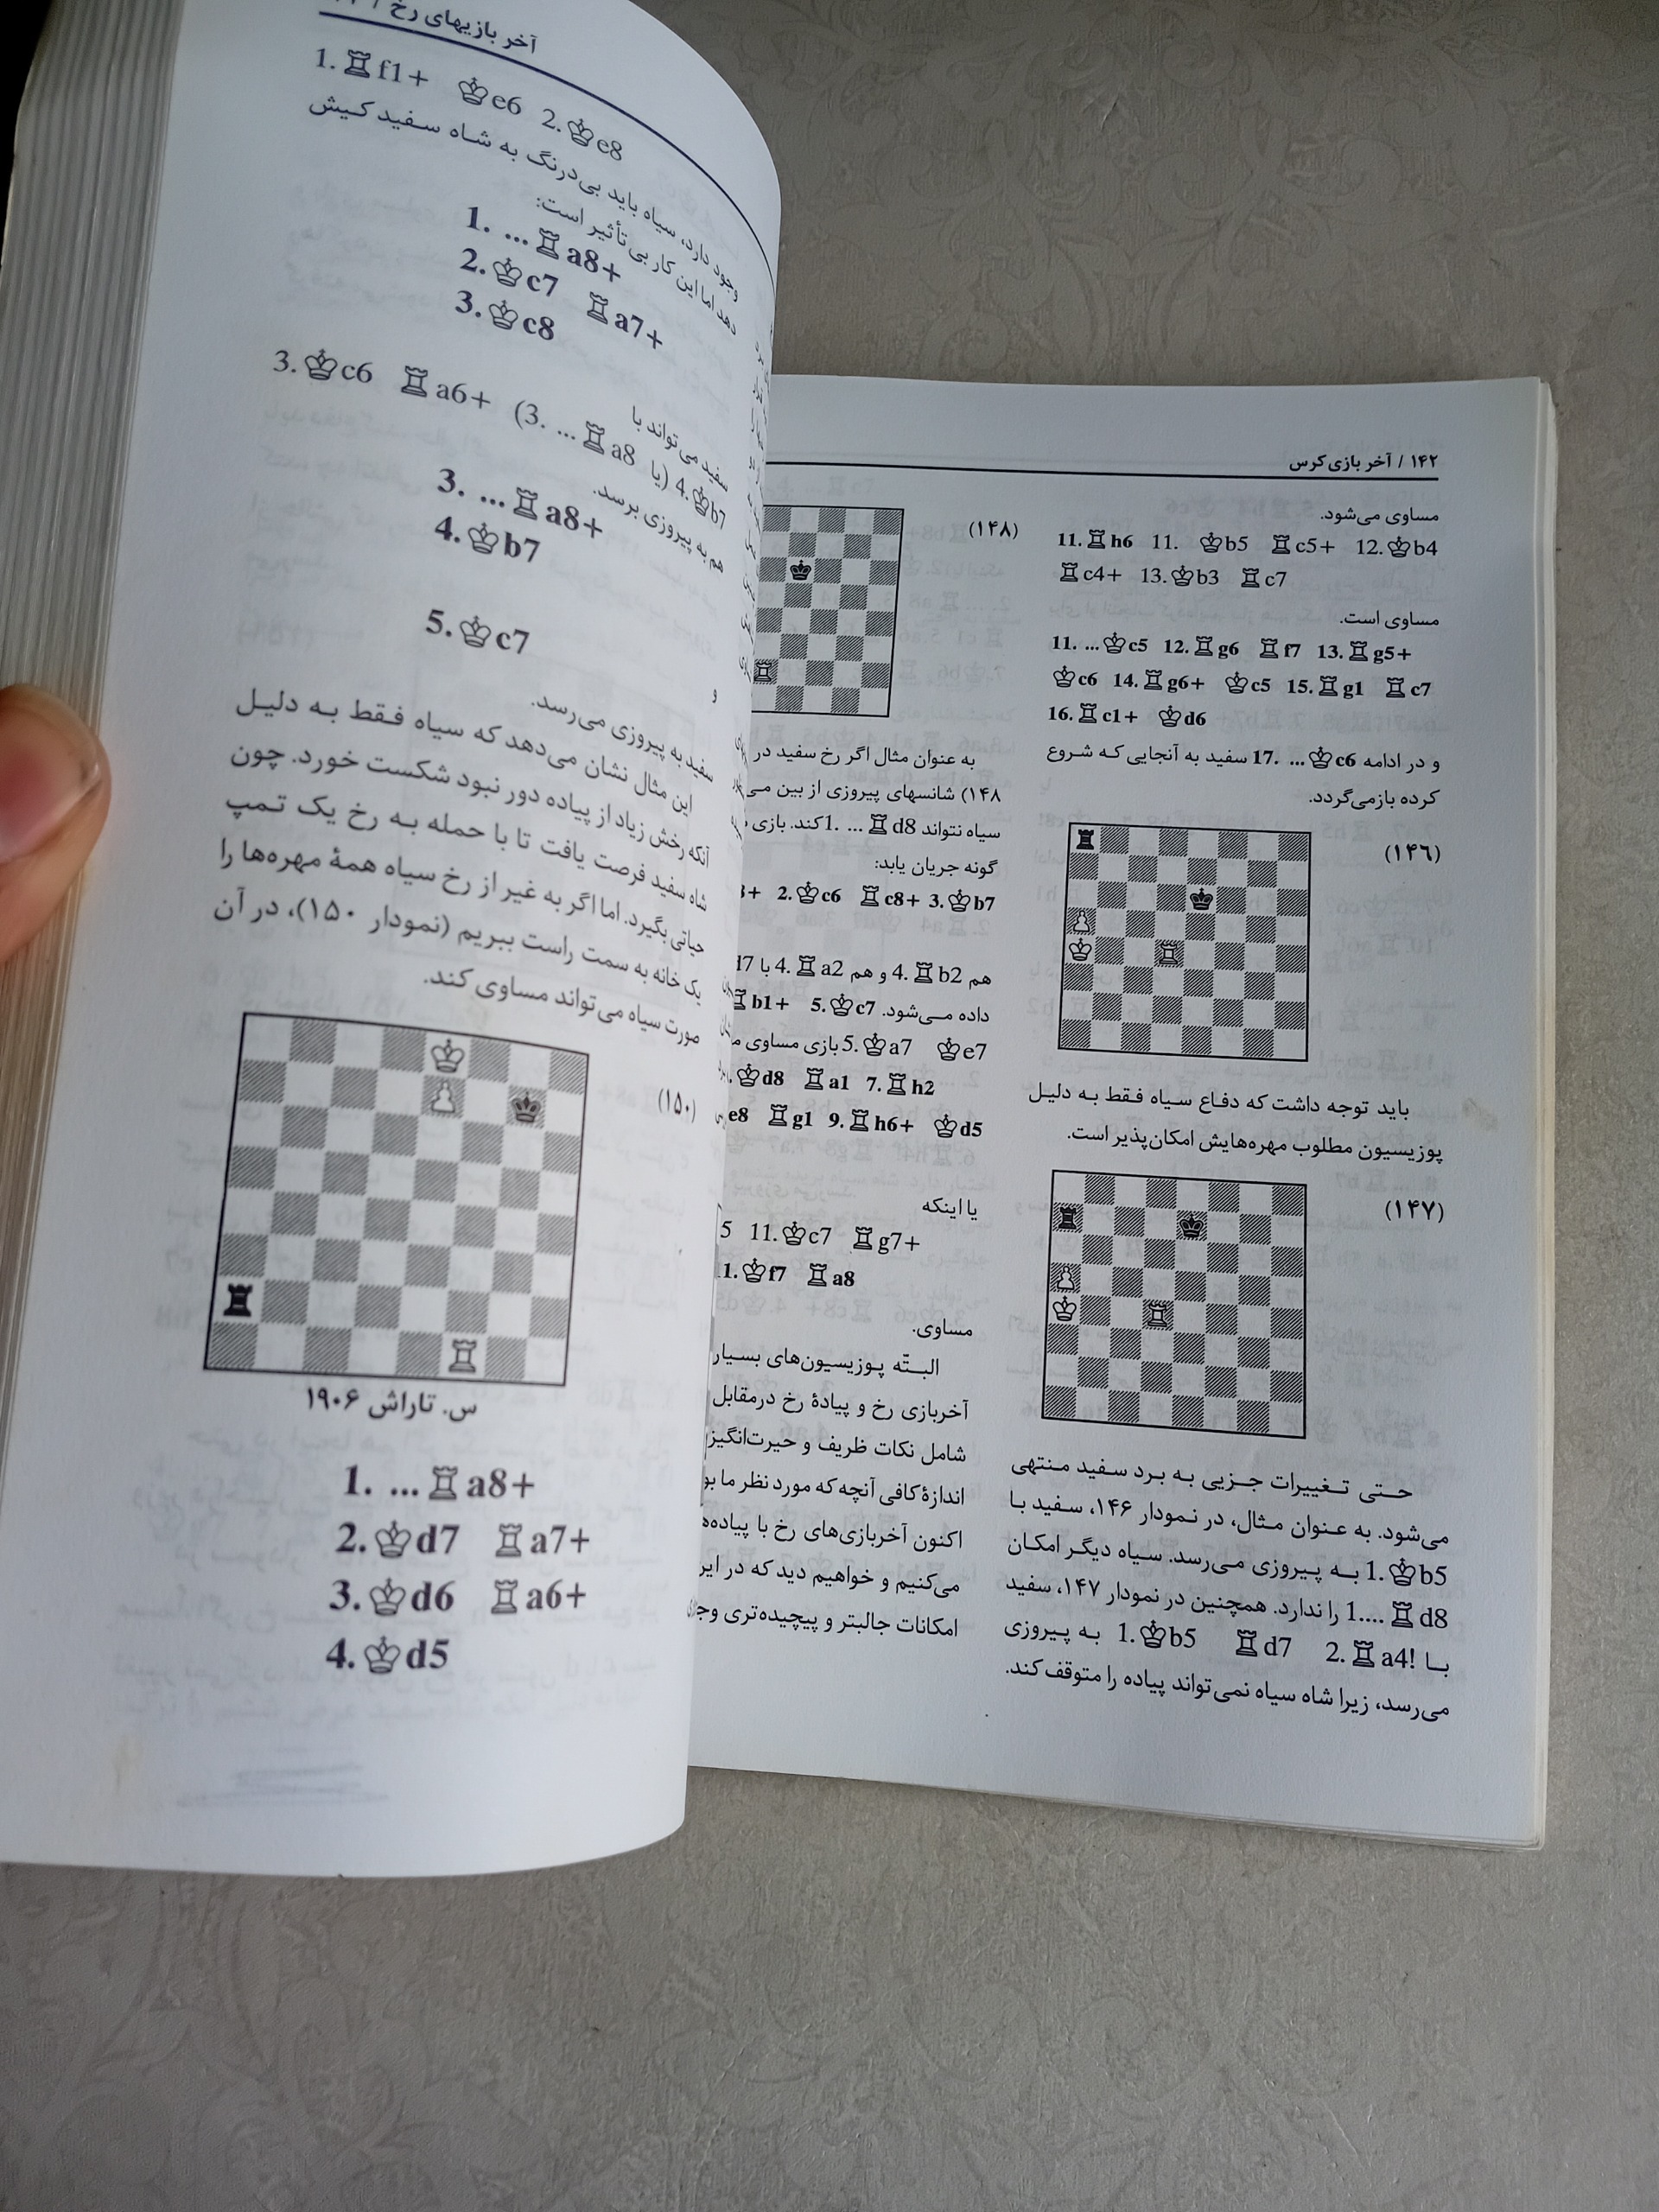 آخر بازیهای رخ /
1. ♖f1+ ♔e6 2. ♔e8
وجود دارد، سیاه باید بی‌درنگ به شاه سفید کیش
دهد اما این کار بی‌تأثیر است:
1. ... ♖a8+
2. ♔c7 ♖a7+
3. ♔c8
سفید می‌تواند با
3. ♔c6 ♖a6+ (3. ... ♖a8 یا) 4. ♔b7
هم به پیروزی برسد.
3. ... ♖a8+
4. ♔b7
و
5. ♔c7
سفید به پیروزی می‌رسد.
این مثال نشان می‌دهد که سیاه فقط به دلیل
آنکه رخش زیاد از پیاده دور نبود شکست خورد. چون
شاه سفید فرصت یافت تا با حمله به رخ یک تمپ
حیاتی بگیرد. اما اگر به غیر از رخ سیاه همهٔ مهره‌ها را
یک خانه به سمت راست ببریم (نمودار ۱۵۰)، در آن
صورت سیاه می‌تواند مساوی کند.
(۱۵۰)
س. تاراش ۱۹۰۶
1. ... ♖a8+
2. ♔d7 ♖a7+
3. ♔d6 ♖a6+
4. ♔d5
۱۴۲ / آخر بازی کرس
مساوی می‌شود.
11. ♖h6 11. ♔b5 ♖c5+ 12. ♔b4
♖c4+ 13. ♔b3 ♖c7
مساوی است.
11. ... ♔c5 12. ♖g6 ♖f7 13. ♖g5+
♔c6 14. ♖g6+ ♔c5 15. ♖g1 ♖c7
16. ♖c1+ ♔d6
و در ادامه 17. ... ♔c6 سفید به آنجایی که شروع
کرده بازمی‌گردد.
(۱۴۶)
باید توجه داشت که دفاع سیاه فقط به دلیل
پوزیسیون مطلوب مهره‌هایش امکان‌پذیر است.
(۱۴۷)
حتی تغییرات جزیی به برد سفید منتهی
می‌شود. به عنوان مثال، در نمودار ۱۴۶، سفید با
1. ♔b5 به پیروزی می‌رسد. سیاه دیگر امکان
1.... ♖d8 را ندارد. همچنین در نمودار ۱۴۷، سفید
با 1. ♔b5 ♖d7 2. ♖a4! به پیروزی
می‌رسد، زیرا شاه سیاه نمی‌تواند پیاده را متوقف کند.
(۱۴۸)
به عنوان مثال اگر رخ سفید در
۱۴۸) شانسهای پیروزی از بین
سیاه نتواند 1. ... ♖d8 کند. بازی
گونه جریان یابد:
2. ♔c6 ♖c8+ 3. ♔b7
هم 4. ♖b2 و هم 4. ♖a2 با
داده می‌شود. 5. ♔c7 ♖b1+
5. ♔a7 ♔e7 بازی مساوی
♔d8 ♖a1 7. ♖h2
e8 ♖g1 9. ♖h6+ ♔d5
یا اینکه
5 11. ♔c7 ♖g7+
1. ♔f7 ♖a8
مساوی.
البتّه پوزیسیون‌های بسیار
آخربازی رخ و پیادهٔ رخ درمقابل
شامل نکات ظریف و حیرت‌انگیز
اندازهٔ کافی آنچه که مورد نظر ما
اکنون آخربازی‌های رخ با
می‌کنیم و خواهیم دید که در
امکانات جالبتر و پیچیده‌تری